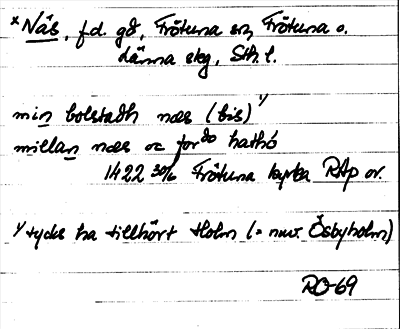 *Näs, f.d. gd, Frötuna sn, Frötuna o.
Länna skg, Sth. l.
min bolstadh næs (bis) 1/
millan næs oc for do hathó
1422 30/6 Frötuna kyrka RAp or.
1/ tycks ha tillhört Holm (= nuv. Ösbyholm)
RO-69